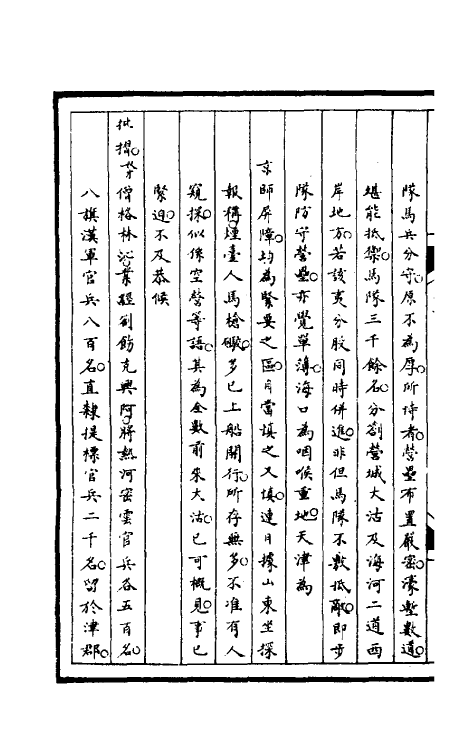 隊馬兵分守。原不為厚。所恃者。營壘布置嚴密。濠塹數道。
堪能抵禦。馬隊三千餘名。分劄營城大沽及海河二道西
岸地方。若該夷分股同時併進。非但馬隊不敷抵敵。即步
隊防守營壘。亦覺單薄。海口為咽喉重地。天津為
京師屏障。均為緊要之區。自當慎之又慎。連日據山東坐探
報稱。煙臺人馬槍礮。多已上船開行。所存無多。不准有人
窺探。似係空營等語。其為全數前來大沽。已可概見。事已
緊迫。不及恭候
批摺。奴才僧格林沁業經劄飭克興阿。將熱河密雲官兵各五百名。
八旗漢軍官兵八百名。直隸提標官兵二千名。留於津郡。